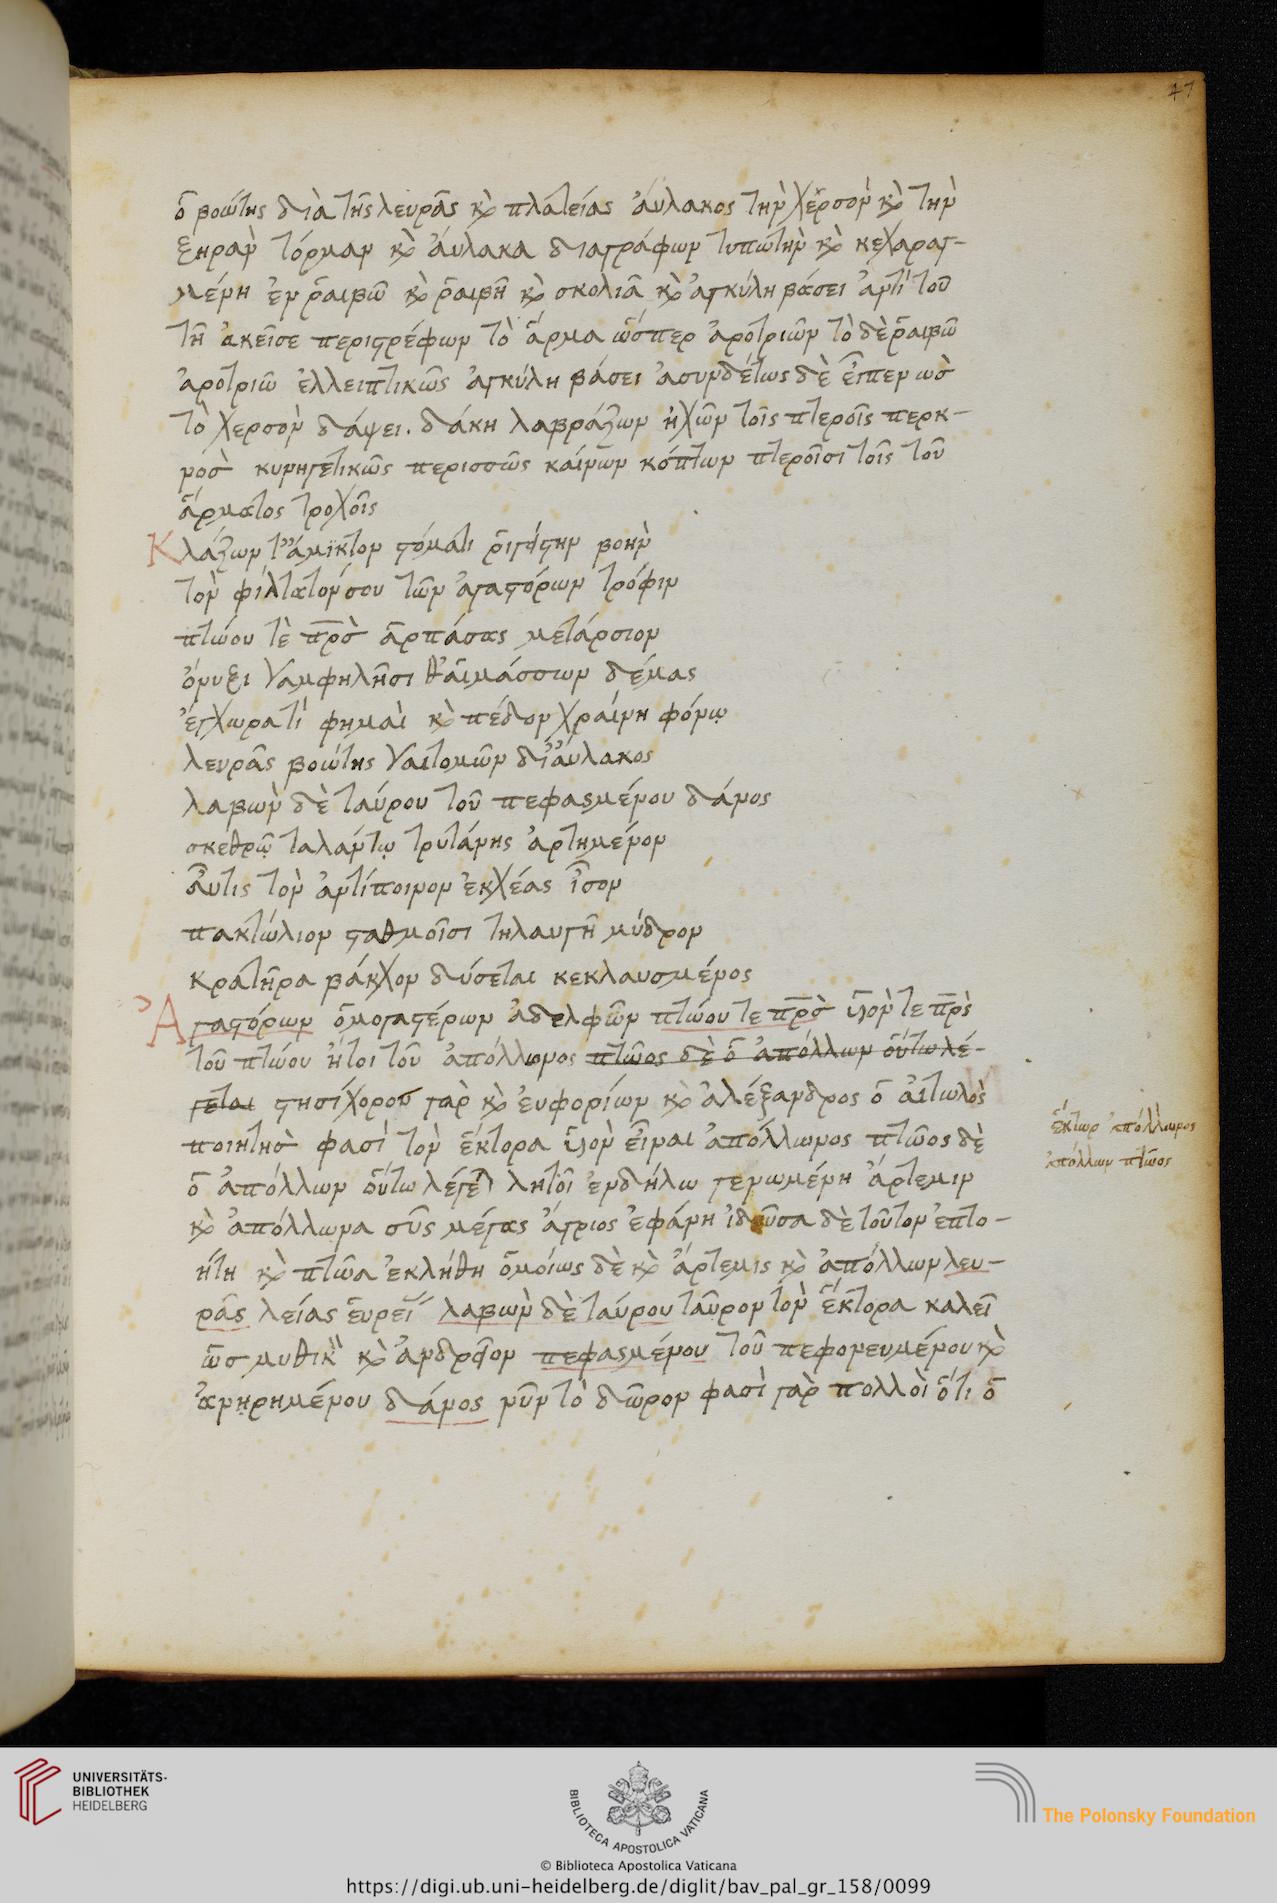 47
ὁ βοώτης διὰ τῆς λευρᾶς κ̀ πλατείας ἄυλακος τὴν χέρσον κ̀ τὴν
ξηρὰν τόρμαν κ̀ ἄυλακα διαγράφων τυπώτην κ̀ κεχαραγ-
μένη ἐν ῥαιβῶ κ̀ ῥαιβῆ κ̀ σκολιᾶ κ̀ ἀγκύλη βάσει ἀντὶ τοῦ
τῆ ἀκεῖσε περιστρέφων τὸ ἅρμα ὥσπερ ἀροτριῶν τὸ δὲ ῥαιβῶ
ἀροτριῶ ἐλλειπτικῶς ἀγκύλη βάσει ἀσυνδέτως δὲ εἶπεν ὡσ
τὸ χερσὸν δάψει. δάκη λαβράζων ἠχῶν τοῖς πτεροῖς περκ-
νόσ κυνηγετικῶς περισσῶς καίνων κόπτων πτεροῖσι τοῖς τοῦ
ἅρματος τροχοῖς
Κλάζων τ' ἄμικτον στόματι ῥιγίστην βοὴν
τὸν φίλτατόν σου τῶν ἀγαστόρων τρόφιν
πτώου τὲ πρσ ἁρπάσας μετάρσιον
ὄνυξι γαμφηλῆσι θ' αἱμάσσων δέμας
ἔγχωρα τί φημαὶ κ̀ πέδον χραίνη φόνῳ
λευρᾶς βοώτης γαιτομῶν δι' ἄυλακος
λαβὼν δὲ ταύρου τοῦ πεφασμένου δάνος
σκεθρῷ ταλάντῳ τρυτάνης ἀρτημένον
Ἄυτις τὸν ἀντίποινον ἐκχέας ἴσον
πακτώλιον σταθμοῖσι τηλαυγῆ μύδρον
κρατῆρα βάκχον δύσεται κεκλαυσμένος
Ἀγαστόρων ὁμογαστέρων ἀδελφῶν πτώου τε πρσ ὑιόν τε πρς
τοῦ πτώου ἤτοι τοῦ ἀπόλλωνος πτῶος δὲ ὁ ἀπόλλων οὕτω λέ-
γεται στησίχορος γαρ κ̀ ἐυφορίων κ̀ ἀλέξανδρος ὁ ἀιτωλὸς
ποιητησ φασὶ τὸν ἕκτορα ὑιὸν εἶναι ἀπόλλωνος πτῶος δὲ
ὁ ἀπόλλων οὕτω λέγε λητοῖ ἐνδήλω γενωμένη ἄρτεμιν
κ̀ ἀπόλλωνα σῦς μέγας ἄγριος ἐφάνη ἰδοῦσα δὲ τοῦτον ἐπτο-
ήτη κ̀ πτῶα ἐκλήθη ὁμοίως δὲ κ̀ ἄρτεμις κ̀ ἀπόλλων λευ-
ρᾶς λείας ἑυρεί λαβὼν δὲ ταύρου ταῦρον τὸν ἕκτορα καλεῖ
ὡσ μυθικ κ̀ ἀνδρεῖον πεφασμένου τοῦ πεφονευμένου κ̀
ἀνῃρημένου δάνος νῦν τὸ δῶρον φασὶ γαρ πολλοὶ ὅτι ὁ
ἕκτωρ ἀπόλλωνος
ἀπόλλων πτῶος
UNIVERSITÄTS-
BIBLIOTHEK
HEIDELBERG
BIBLIOTECA APOSTOLICA VATICANA
The Polonsky Foundation
© Biblioteca Apostolica Vaticana
https://digi.ub.uni-heidelberg.de/diglit/bav_pal_gr_158/0099